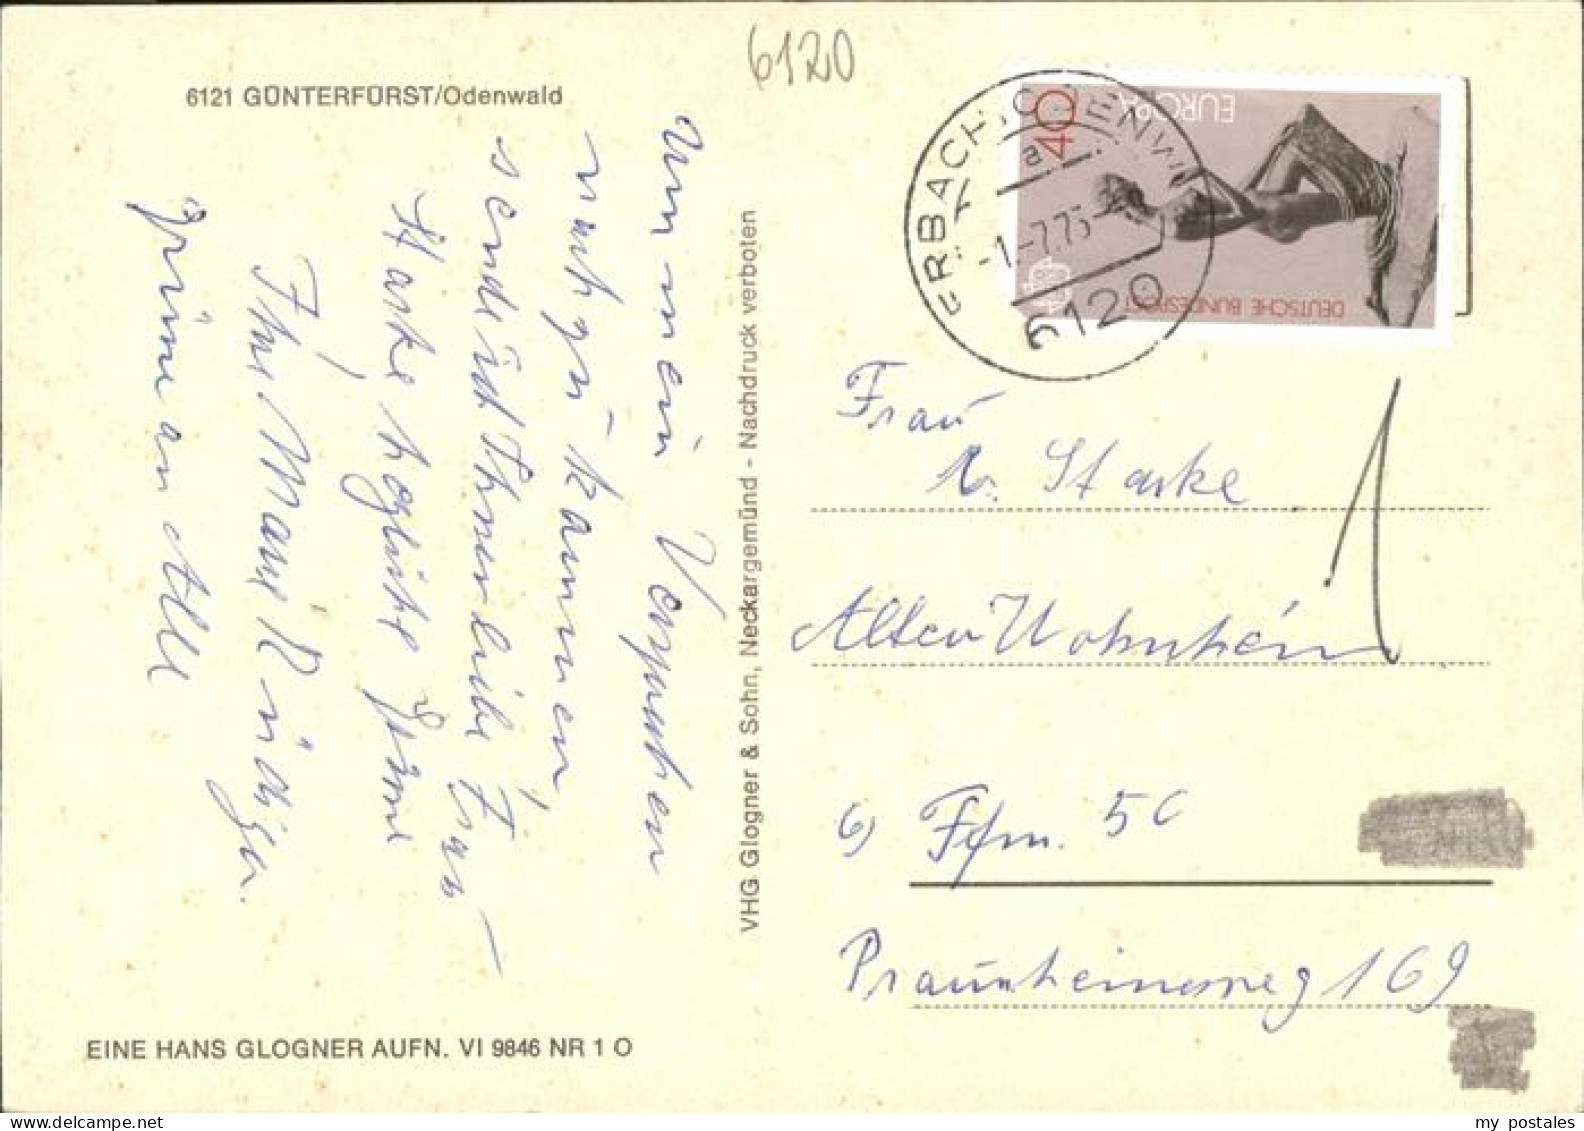 6120
6121 GÜNTERFÜRST/Odenwald
Um mein Versprechen
nachzukommen,
sende ich Ihnen liebe Frau
Starke herzliche Grüße
Ihre
Grüße an Alle
VHG Glogner & Sohn, Neckargemünd - Nachdruck verboten
EINE HANS GLOGNER AUFN. VI 9846 NR 1 O
ERBACH, ODENW
a
-1.-7.75
6120
40
EUROPA
DEUTSCHE BUNDESPOST
Frau
Starke
Alten Wohnheim
1
6) Ffm. 50
Praunheimerweg 169
my postales